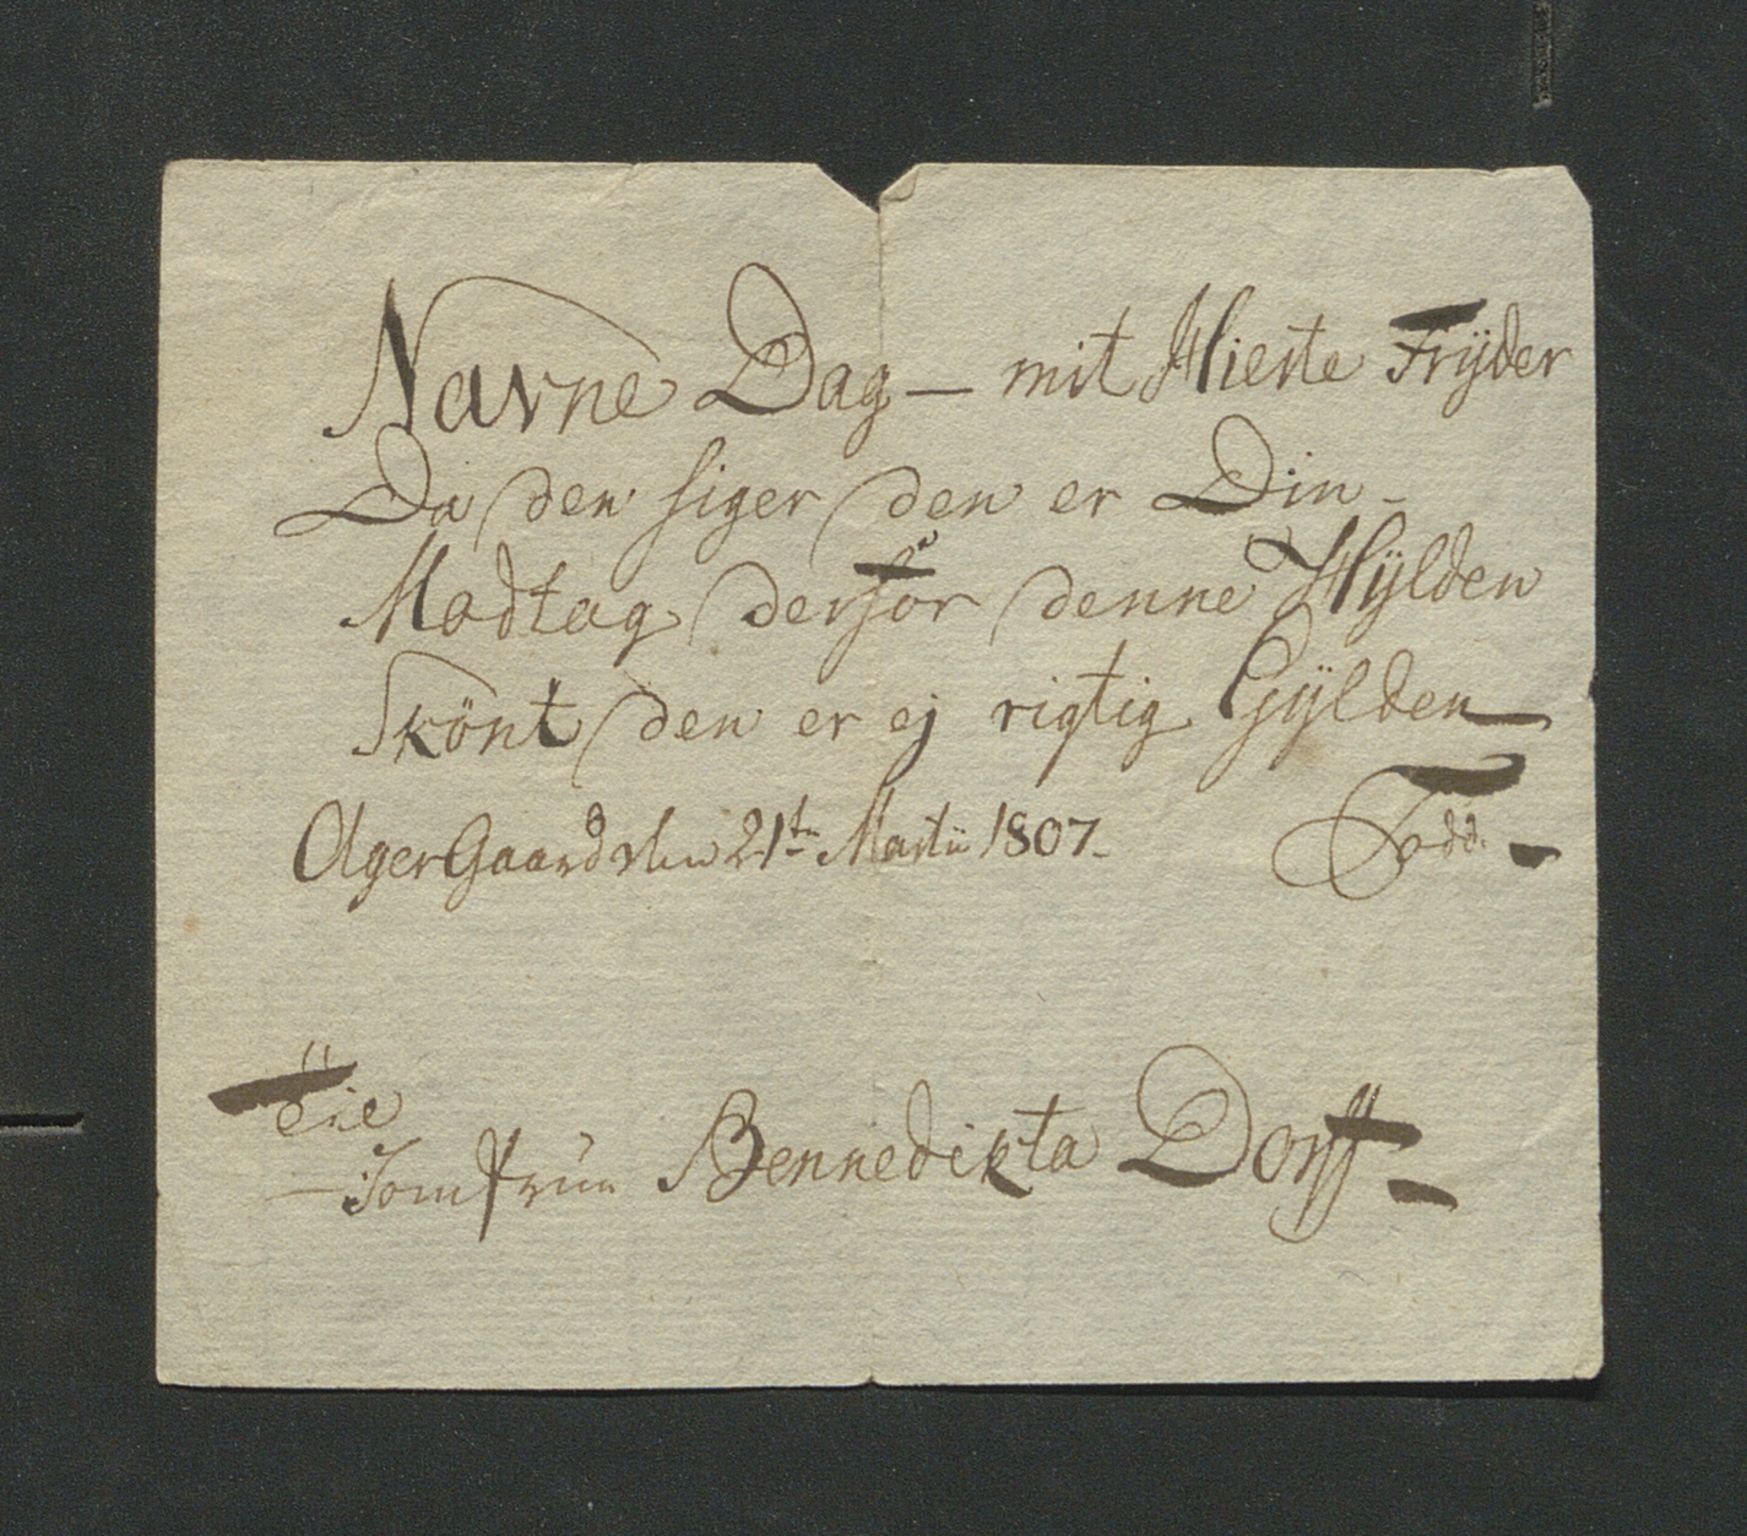 Navne Dag — mit Hierte Frÿder
Da den siger den er Din -
Modtag derfor denne Hÿlden
Skönt den er ej rigtig Gÿlden
AgerGaard den 21de Martii 1807.
Todd.
Til
Jomfrue Bennedikta Dorff